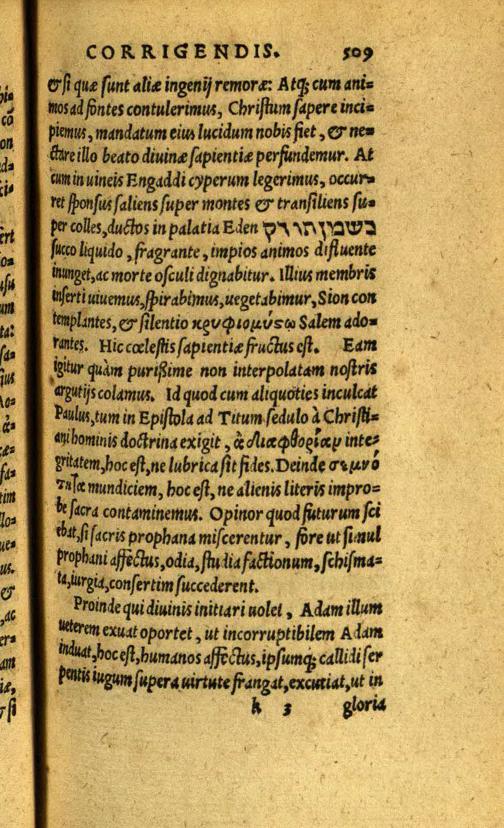 CORRIGENDIS. 509
& si quæ sunt aliæ ingenij remoræ: Atq; cum ani=
mos ad fontes contulerimus, Christum sapere inci=
piemus, mandatum eius lucidum nobis fiet, & ne=
ctare illo beato diuinæ sapientiæ perfundemur. At
cum in uineis Engaddi cyperum legerimus, occur=
ret sponsus saliens super montes & transiliens su=
per colles, ductos in palatia Eden בשמן תורק
succo liquido, fragrante, impios animos difluente
inunget, ac morte osculi dignabitur. Illius membris
inserti uiuemus, spirabimus, uegetabimur, Sion con
templantes, & silentio κρυφιομύςῳ Salem ado=
rantes. Hic cœlestis sapientiæ fructus est. Eam
igitur quàm purißime non interpolatam nostris
argutijs colamus. Id quod cum aliquoties inculcat
Paulus, tum in Epistola ad Titum sedulo à Christi=
ani hominis doctrina exigit, ἀδιαφθορίαν inte=
gritatem, hoc est, ne lubrica sit fides. Deinde σεμνό
τητα mundiciem, hoc est, ne alienis literis impro=
be sacra contaminemus. Opinor quod futurum sci
ebat, si sacris prophana miscerentur, fore ut simul
prophani affectus, odia, studia factionum, schisma=
ta, iurgia, consertim succederent.
Proinde qui diuinis initiari uolet, Adam illum
ueterem exuat oportet, ut incorruptibilem Adam
induat, hoc est, humanos affectus, ipsumq; callidi ser
pentis iugum supera uirtute frangat, excutiat, ut in
k 3 gloria